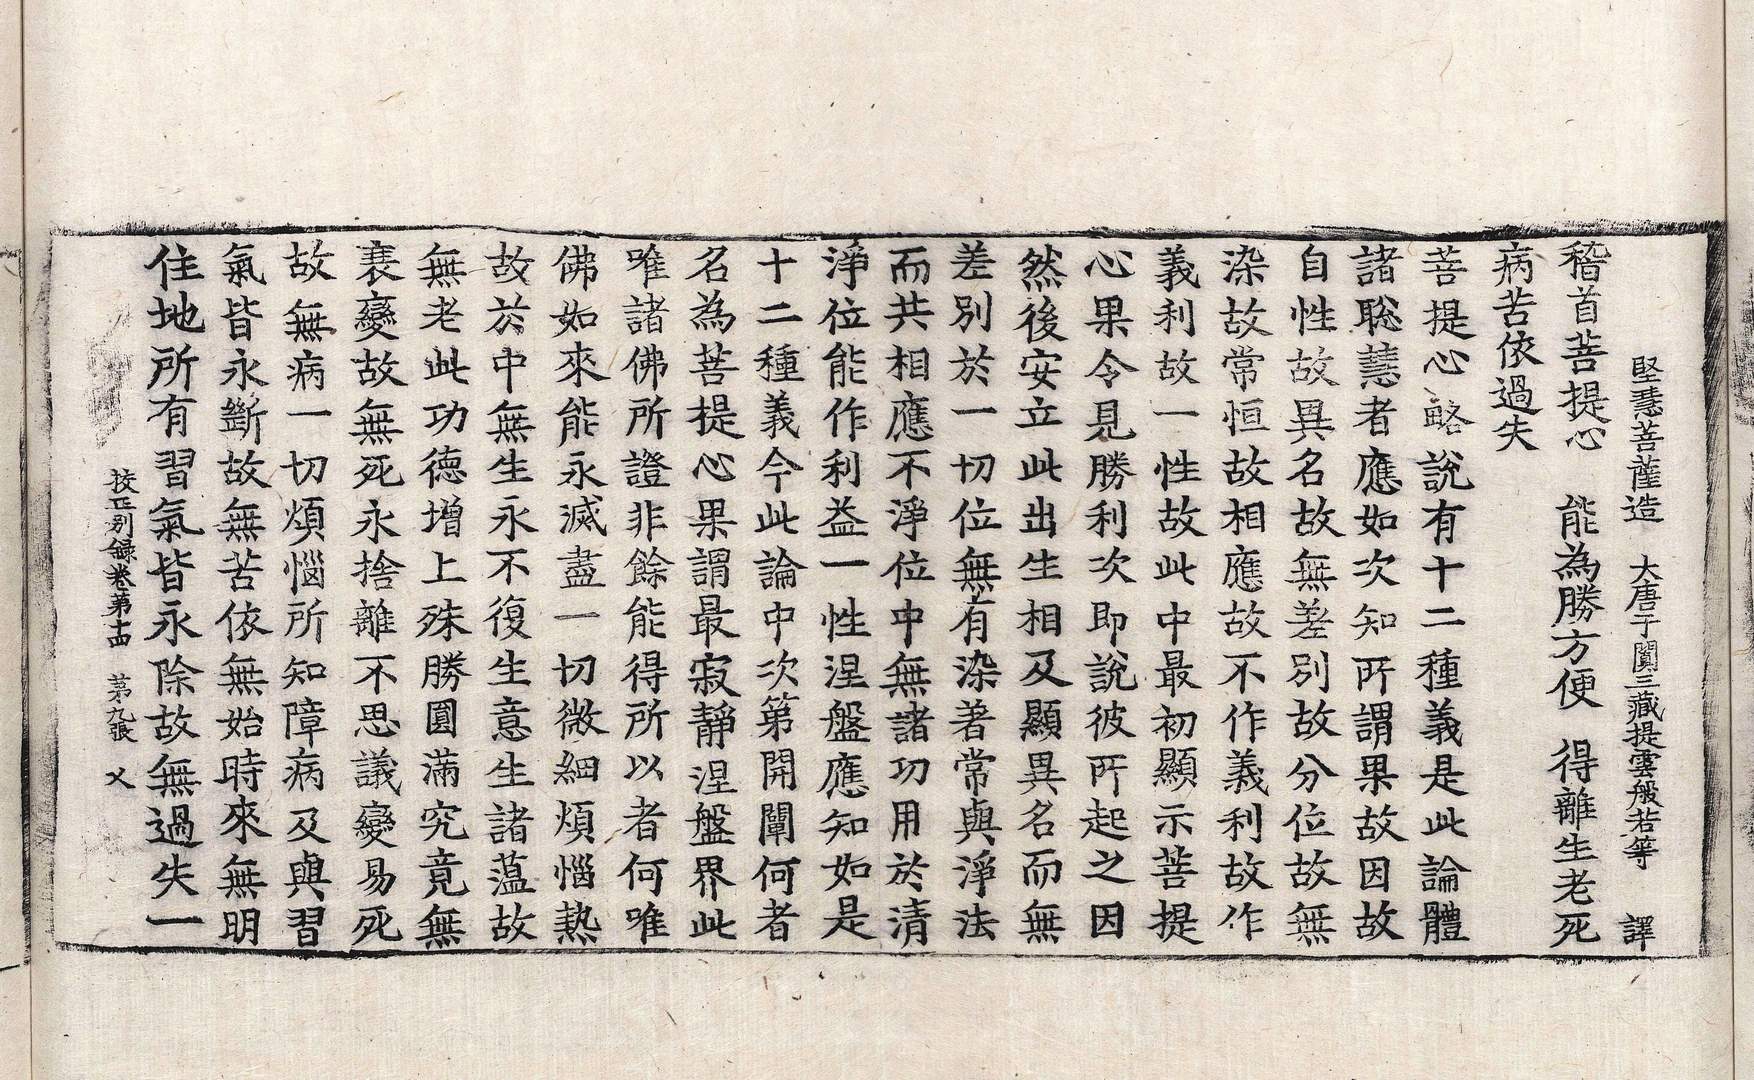 堅慧菩薩造　大唐于闐三藏提雲般若等　譯
稽首菩提心　能為勝方便　得離生老死
病苦依過失
菩提心略說有十二種義是此論體
諸聡慧者應如次知所謂果故因故
自性故異名故無差別故分位故無
染故常恒故相應故不作義利故作
義利故一性故此中最初顯示菩提
心果令見勝利次即說彼所起之因
然後安立此出生相及顯異名而無
差別於一切位無有染著常與淨法
而共相應不淨位中無諸功用於清
淨位能作利益一性涅盤應知如是
十二種義今此論中次第開闡何者
名為菩提心果謂最寂靜涅盤界此
唯諸佛所證非餘能得所以者何唯
佛如來能永滅盡一切微細煩惱熱
故於中無生永不復生意生諸薀故
無老此功德增上殊勝圓滿究竟無
衰變故無死永捨離不思議變易死
故無病一切煩惱所知障病及與習
氣皆永斷故無苦依無始時來無明
住地所有習氣皆永除故無過失一
校正別錄卷第十四　第九張　乂